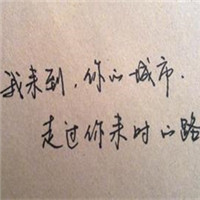 我来到,你的城市.
走过你来时的路